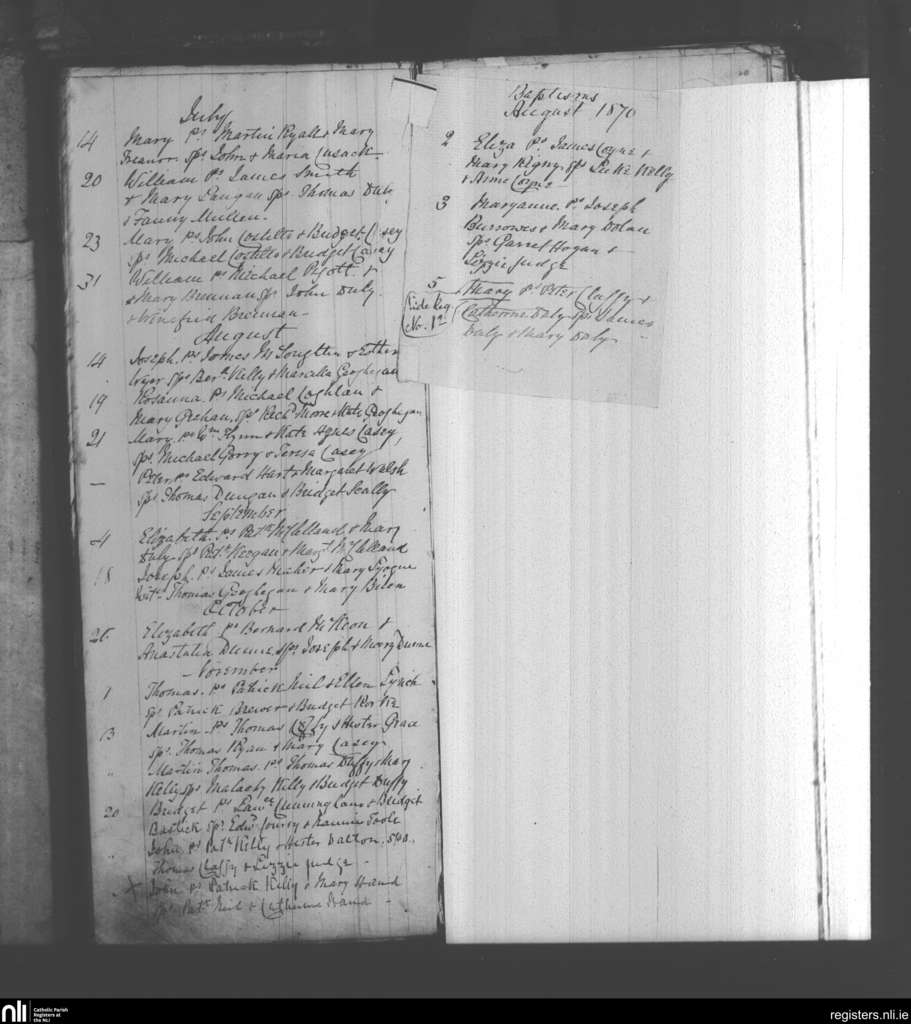 July
14 Mary Ps Martin Ryall & Mary
Sps John & Maria Cusack
20 William Ps James Smith
& Mary Dangan Sps Thomas Daly
& Fanny Mullen.
23 Mary Ps John Costello & Bridget Casey
Sps Michael Costello & Bridget Casey
31 William Ps Michael Pigott &
& Mary Brennan Sps John Daly
& Winefrid Brennan
August
14 Joseph. Ps James McLoughlin & Esther
Sps Bern. Kelly & Marcella Geoghegan
19 Rosanna Ps Michael Coghlan &
Mary Sps Richd Moore & Kate Geoghegan
21 Mary Ps Wm Flynn & Kate Agnes Casey,
Sps Michael Gorry & Teresa Casey
— Peter Ps Edward Hart & Margaret Walsh
Sps Thomas Dungan & Bridget Scally
September
4 Elizabeth. Ps Patk McClelland & Mary
Daly Sps Patk Keegan & Margt McClelland
18 Joseph. Ps James Maher & Mary
Thomas Geoghegan & Mary
October
Elizabeth Ps Bernard McKeon &
Anastatia Dunne Sps Joseph & Mary Dunne
November
1 Thomas. Ps Patrick Neil & Ellen Lynch
Sps Patrick Brewer & Bridget
13 Martin Ps Thomas & Hester Grace
Sps Thomas Ryan & Mary Casey
" Martin Thomas Ps Thomas Duffy & Mary
Kelly Sps Malachy Kelly & Bridget Duffy
20 Bridget Ps Lawce Cunningham & Bridget
Bastick Sps Edwd & Fannie Toole
" John Ps Patk Kelly & Hester Dalton. Sps.
Thomas Claffy & Lizzie Judge -
X John Ps Patrick Kelly & Mary Hand
Sps Patk Neil & Catherine Hand -
Baptisms
August 1870
2 Eliza Ps James Coyne &
Mary Rigny. Sps Luke Kelly
& Anne Coyne
3 Maryanne. Ps Joseph
Burrowes & Mary Dolan
Sps Garret Hogan &
Lizzie Judge
5 Mary Ps Peter Claffy &
(Vide Reg. No. 12) Catherine Daly Sps James
Daly & Mary Daly
nli
Catholic Parish
Registers at
the NLI
registers.nli.ie